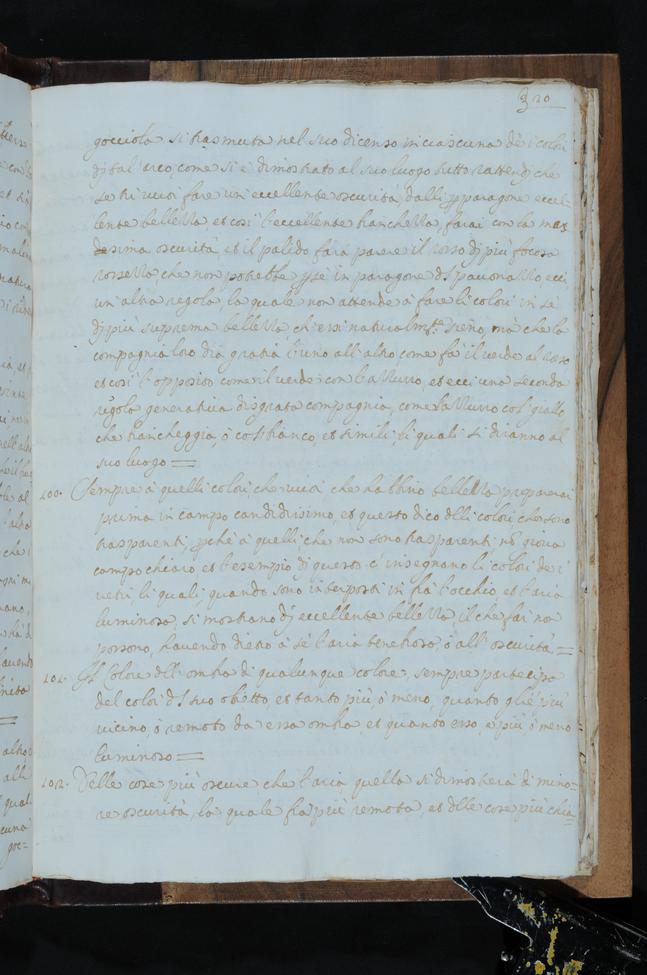 320
gocciola si trasmuta nel suo dicenso in ciascuna de i colori
di tal arco, come si è dimostrato al suo luogo tutto attendi che
se tu vuoi fare un' eccellente oscurità, dalli p paragone eccel-
lente bellezza, et così l'eccellente bianchezza, farai con la max
desima oscurità, et il palido farà parere il rosso di più focosa
rossezza che non potrebbe p se in paragone d pauonazzo, ecci
un' altra regola, la quale non attende à fare li colori in se
di più suprema bellezza, ch' essi naturalmte sieno, mà che la
compagnia loro dia gratia l'uno all' altro come fà il verde al rosso
et così l'opposito come il verde con l'azzurro, et ecci una seconda
regola generativa di sgrata compagnia, come l'azzurro col giallo
che biancheggia, ò col bianco, et simili, li quali si diranno al
suo luogo =
100. Sempre à quelli colori che vuoi che habbino bellezza preparerai
prima in campo candidissimo, et questo dico delli colori che sono
trasparenti, pche à quelli, che non sono trasparenti, nō giova
campo chiaro, et l'esempio di questo c' insegnano li colori de i
vetri, li quali, quando sono interposti in frà l'occhio, et l'aria
luminosa, si mostrano di eccellente bellezza, il che far non
possono, havendo dietro à sè l'aria tenebrosa, ò altr' oscurità =
101. Il Colore dell' ombra di qualunque colore, sempre partecipa
del color d suo obietto, et tanto più, ò meno, quanto gli è più
vicino, ò remoto da essa ombra, et quando esso è più, ò meno
luminoso =
102. Delle cose più oscure che l'aria quella si dimostrerà di mino-
re oscurità, la quale fia più remota, et delle cose più chia-